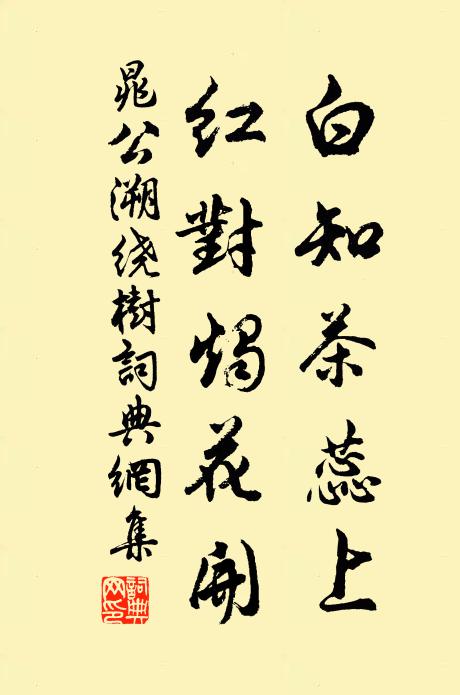 白知茶蕊上
红對燭花開
晁公溯绕樹詞典網集
詞典網印